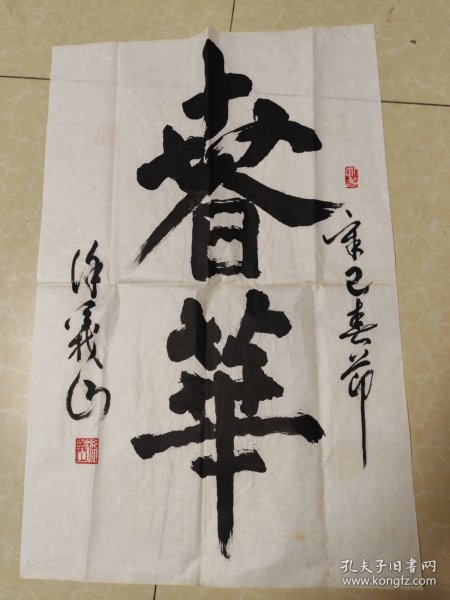 春華
辛巳春节
徐義山
孔夫子旧书网
www.kongfz.com